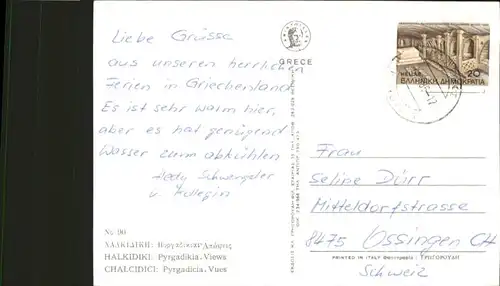 Liebe Grüsse
aus unseren herrlichen
Ferien in Griechenland
Es ist sehr warm hier,
aber es hat genügend
Wasser zum abkühlen
Hedy Schwengeler
u. Kollegin
GRECE
HELLAS
20
ΕΛΛΗΝΙΚΗ ΔΗΜΟΚΡΑΤΙΑ
Frau
Seline Dürr
Mitteldorfstrasse
8475 Ossingen CH
Schweiz
No 90
ΧΑΛΚΙΔΙΚΗ: Πυργαδίκια-Απόψεις
HALKIDIKI: Pyrgadikia-Views
CHALCIDICI: Pyrgadicia-Vues
PRINTED IN ITALY